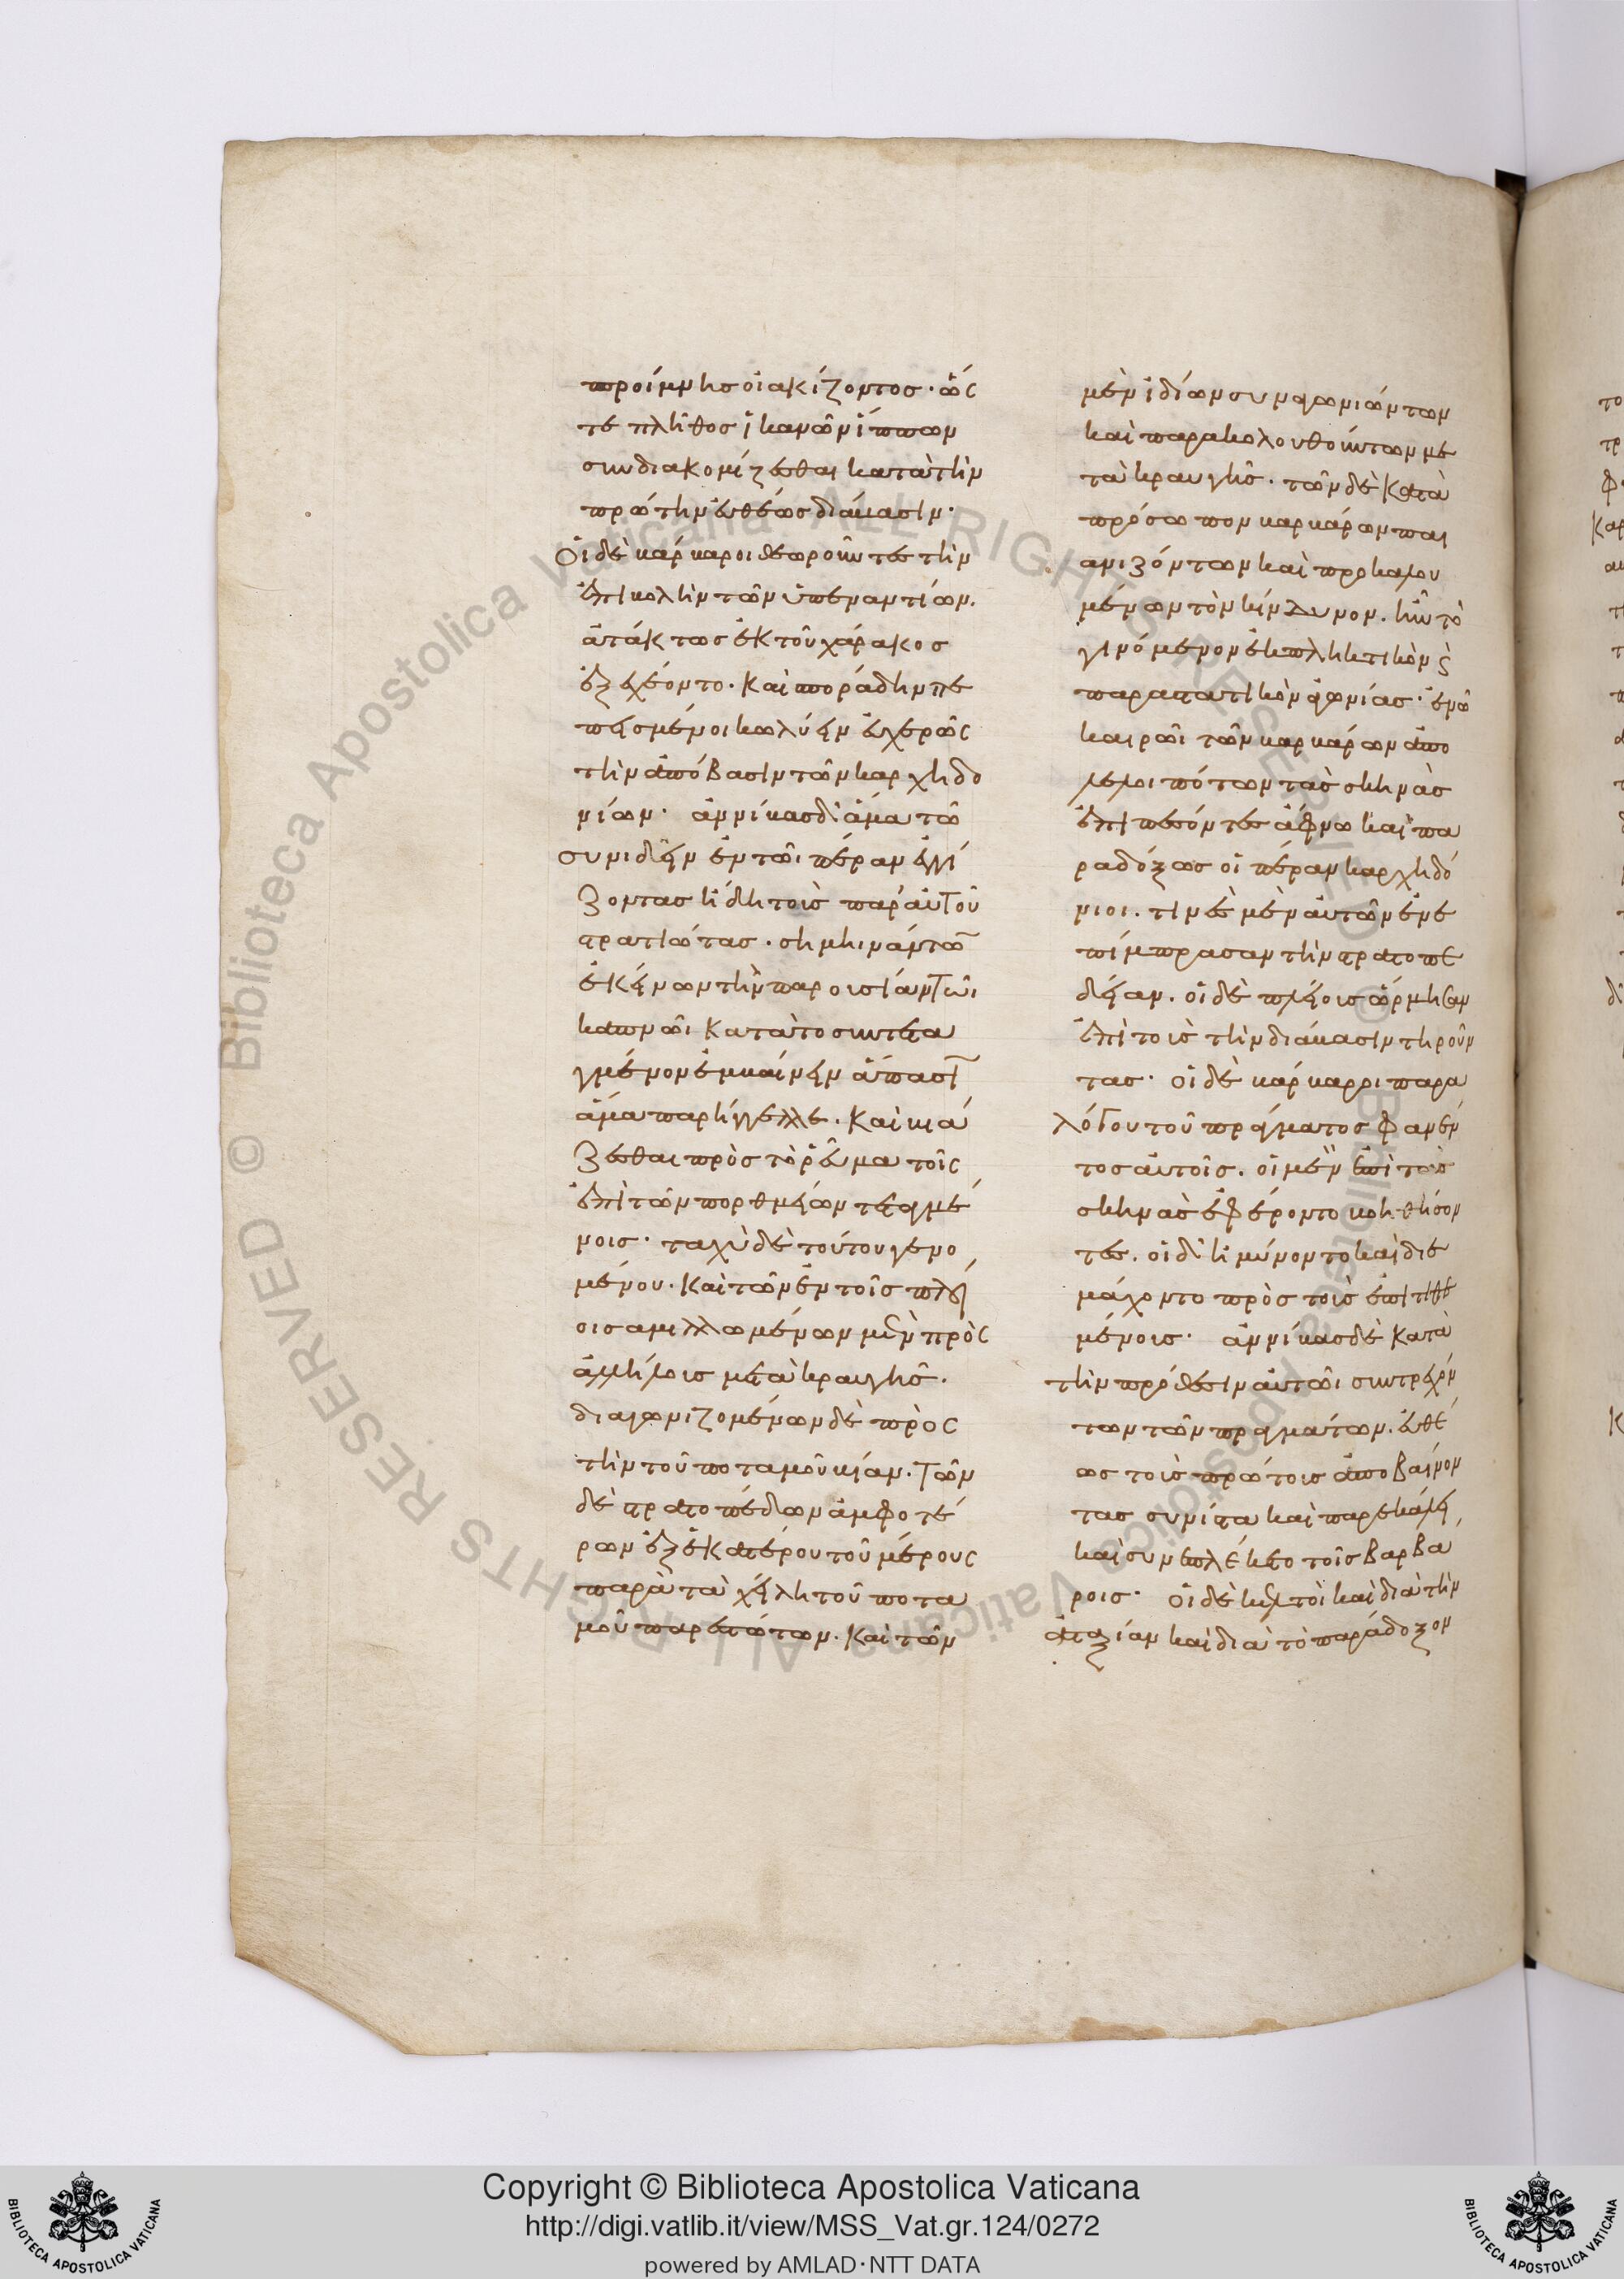 προίμνης οἰακίζοντος· ὥς
τε πλῆθος ἱκανῶν ἵππων
συνδιακομίζεσθαι κατὰ τὴν
πρώτην εὐθέως διάβασιν·
Οἱ δὲ βάρβαροι θεωροῦντες τὴν
ἐπιβολὴν τῶν ὑπεναντίων.
ἀτάκτως ἐκ τοῦ χάρακος
ἐξεχέοντο. καὶ σποράδην πε
πεισμένοι κωλύειν εὐχερῶς
τὴν ἀπόβασιν τῶν καρχηδο
νίων· ἀννίβας δ' ἅμα τῶ
συνιδεῖν ἐν τῶι πέραν ἐγγί
ζοντας ἤδη τοὺς παρ' αὑτοῦ
στρατιώτας. σημηνάντω
ἐκείνων τὴν παρουσίαν τῶι
καπνῶι κατὰ τὸ συντετα
γμένον ἐμβαίνειν ἅπασῖ
ἅμα παρήγγελλε. καὶ βιά
ζεσθαι πρὸς τὸ ῥεῦμα τοῖς
ἐπὶ τῶν πορθμείων τεταγμέ
νοις· ταχὺ δὲ τούτου γενο
μένου. καὶ τῶν ἐν τοῖς πλοί
οις αμιλλωμένων μὲν πρὸς
ἀλλήλους μετὰ κραυγῆς.
διαγωνιζομένων δὲ πρὸς
τὴν τοῦ ποταμοῦ βίαν. τῶν
δὲ στρατοπέδων ἀμφοτέ
ρων ἐξ ἑκατέρου τοῦ μέρους
παρὰ τὰ χείλη τοῦ ποτα
μοῦ παρεστώτων. καὶ τῶν
μὲν ἰδίων συναγωνιώντων
καὶ παρακολουθούντων με
τὰ κραυγῆς. τῶν δὲ κατὰ
πρόσωπον βαρβάρων παι
ανιζόντων καὶ προκαλου
μένων τὸν κίνδυνον. ἦν τὸ
γινόμενον ἐκπληκτικὸν ϗ̀
παραστατικὸν ἀγωνίας· ἐν ὧ
καιρῶι τῶν βαρβάρων ἀπο
λελοιπότων τὰς σκηνὰς
ἐπιπεσόντες ἄφνω καὶ πα
ραδόξως οἱ πέραν καρχηδό
νιοι. τινὲς μὲν αὐτῶν ἐνε
πίμπρασαν τὴν στρατοπε
δείαν. οἱ δὲ πλείους ὥρμησαν
ἐπὶ τοὺς τὴν διάβασιν τηροῦν
τας· οἱ δὲ βάρβαροι παρα
λόγου τοῦ πράγματος φανέν
τος αὐτοῖς. οἱ μὲν ἐπὶ τὰς
σκηνὰς ἐφέροντο βοηθήσον
τες. οἱ δ' ἠμύνοντο καὶ διε
μάχοντο πρὸς τοὺς ἐπιτιθε
μένους· ἀννίβας δὲ κατὰ
τὴν πρόθεσιν αὐτῶι συντρεχόν
των τῶν πραγμάτων. εὐθέ
ως τοὺς πρώτους ἀποβαίνον
τας συνίστα καὶ παρεκάλει
καὶ συνεπλέκετο τοῖς βαρβά
ροις· οἱ δὲ κελτοὶ καὶ διὰ τὴν
ἀταξίαν καὶ διὰ τὸ παράδοξον
Copyright © Biblioteca Apostolica Vaticana
http://digi.vatlib.it/view/MSS_Vat.gr.124/0272
powered by AMLAD·NTT DATA